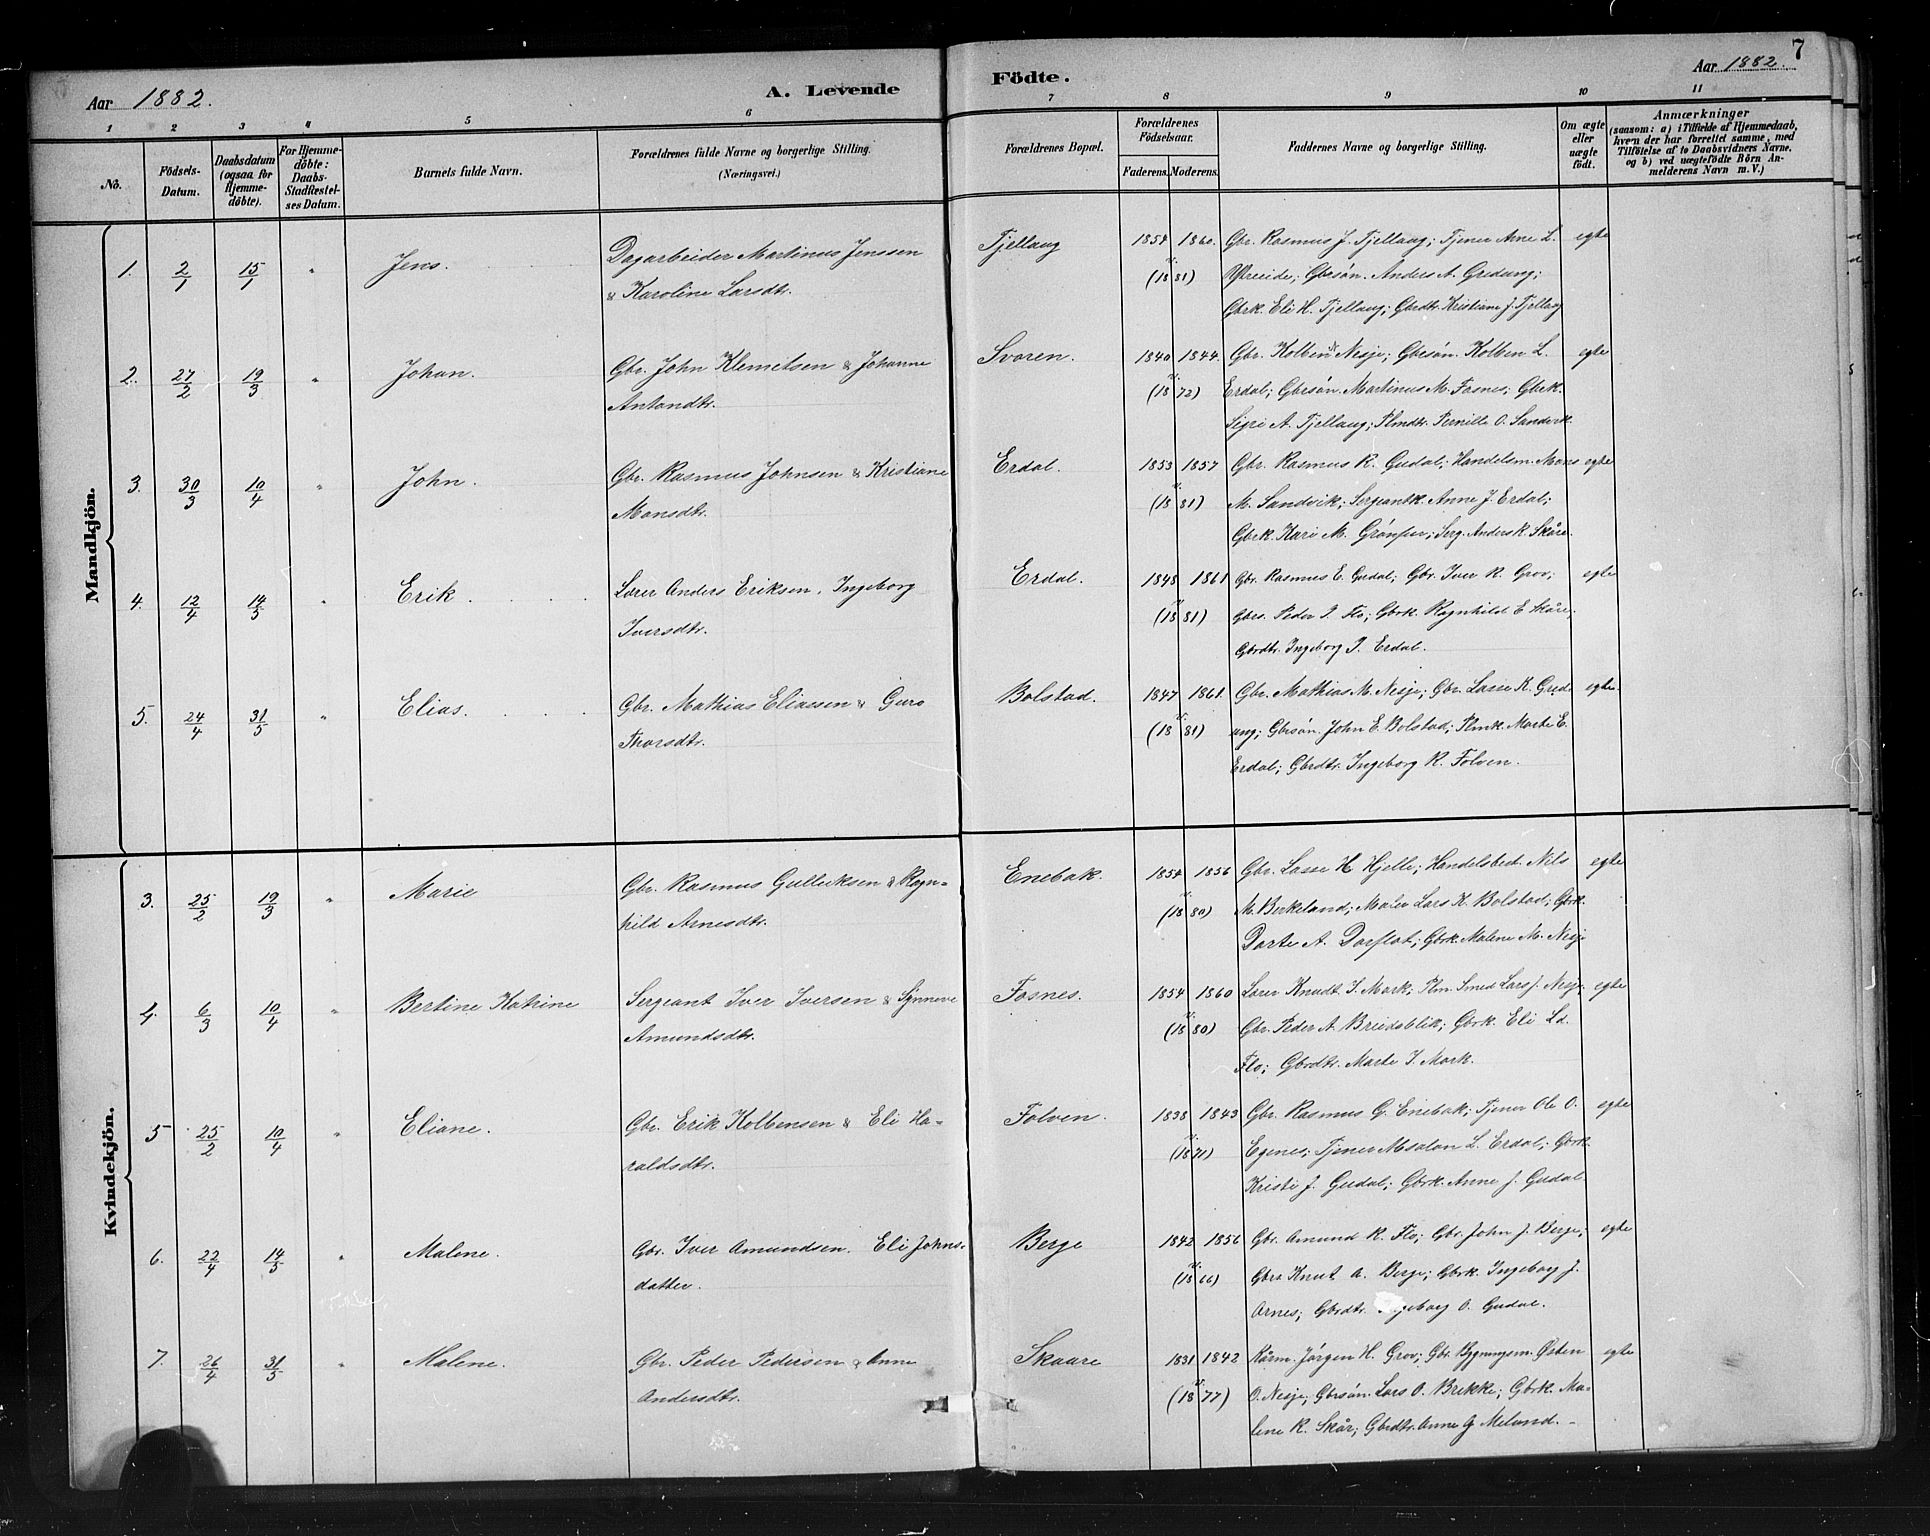 7
Aar 1882.
A. Levende
Födte.
Aar 1882.
1 2 3 4 5 6 7 8 9 10 11
No.
Födsels-
Datum.
Daabsdatum
(ogsaa for
Hjemme-
döbte).
For Hjemme-
döbte:
Daabs-
Stadfæstel-
ses Datum.
Barnets fulde Navn.
Forældrenes fulde Navne og borgerlige Stilling.
(Næringsvei.)
Forældrenes Bopæl.
Forældrenes
Födselsaar.
Faderens. Moderens.
Faddernes Navne og borgerlige Stilling.
Om ægte
eller
uægte
födt.
Anmærkninger
(saasom: a) i Tilfælde af Hjemmedaab,
hvem der har forrettet samme, med
Tilföielse af to Daabsvidners Navne,
og b) ved uægtefödte Börn An-
melderens Navn m. V.)
Mandkjön.
1. 2/1 15/1 " Jens. Dagarbeider Martinus Jenssen
& Karoline Larsdtr.
Tjellaug 1854 1860. (1881)
Gbr. Rasmus J. Tjellaug; Tjener Arne L.
Øvreeide; Gbrsøn. Anders A. Gredung;
Gbrk. Eli H. Tjellaug; Gbrdtr. Kristiane J. Tjellaug
egte
2. 27/2 19/3 " Johan. Gbr. John Klemetsen & Johanne
Antondtr.
Svoren. 1840 1844. (1872)
Gbr. Kolben Nesje; Gbrsøn. Kolben L.
Erdal; Gbrsøn Martinus M. Fosnes; Gbrk.
Sigri A. Tjellaug; Plmdtr. Pernille O. Sandvik.
egte
3. 30/3 10/4 " John. Gbr. Rasmus Johnsen & Kristiane
Monsdtr.
Erdal. 1853 1857 (1881)
Gbr. Rasmus R. Gudal; Handelsm. Mons
M. Sandvik; Sergeantk. Anne J. Erdal;
Gbrk. Kari M. Serg. Anders R. Skåre.
egte
4. 12/4 14/5 " Erik. Lærer Anders Eriksen, Ingeborg
Iversdtr.
Erdal. 1848 1861 (1881)
Gbr. Rasmus E. Gudal; Gbr. Iver R. Grov;
Gbrs. Peder I. Flo; Gbrk. Ragnhild E. Skåre;
Gbrdtr. Ingeborg I. Erdal.
egte
5. 24/4 31/5 " Elias. Gbr. Mathias Eliassen & Guro
Thorsdtr.
Bolstad. 1847 1861. (1881)
Gbr. Mathias M. Nesje; Gbr. Lasse K. Gred-
ung; Gbrsøn. John E. Bolstad; Plmk. Marte E.
Erdal; Gbrdtr. Ingeborg R. Folven.
egte.
Kvindekjön.
3. 25/2 19/3 " Marie Gbr. Rasmus Gullecksen & Ragn-
hild Arnesdtr.
Enebak. 1854 1856 (1880)
Gbr. Lasse H Hjelle; Handelsbet. Nils
M. Birkeland; Maler Lars K. Bolstad; Gbrk.
Dorte A. Dorflot; Gbrk. Malene M. Nesje
egte
4. 6/3 10/4 " Bertine Katrine Sergeant Iver Iversen & Synneve
Amundsdtr.
Fosnes. 1854 1860 (1880)
Lærer Knudt I. Mork; Plm. Smed Lars J. Nesje;
Gbr. Peder A. Briedsblik; Gbrk. Eli Ld.
Flo; Gbrdtr. Marte I. Mork.
egte
5 25/2 10/4 " Eliane. Gbr. Erik Kolbensen & Eli Ha-
raldsdtr.
Folven. 1838 1843 (1871)
Gbr. Rasmus G. Enebak; Tjener Ole O.
Egenes; Tjener Absalon L. Erdal; Gbrk.
Kristi J. Gudal; Gbrk. Anne J. Gudal
egte
6. 22/4 14/5 " Malene. Gbr. Iver Amundsen. Eli Johns-
datter.
Berge 1842 1856 (1866)
Gbr. Amund R. Flo; Gbr. John J. Berge;
Gbrs. Knut A. Berge; Gbrk. Ingeborg J.
Arnes; Gbrdtr. Ingeborg O. Gudal.
egte
7. 26/4 31/5 " Malene. Gbr. Peder Pedersen & Anne
Andersdtr.
Skaare 1831 1842 (1877)
Kårm. Jørgen H. Grov; Gbr. Bygningsm. Østen
O. Nesje; Gbrsøn. Lars O. Brekke; Gbrk. Ma-
lene R. Skår; Gbrdtr. Anne G Melund. -
egte